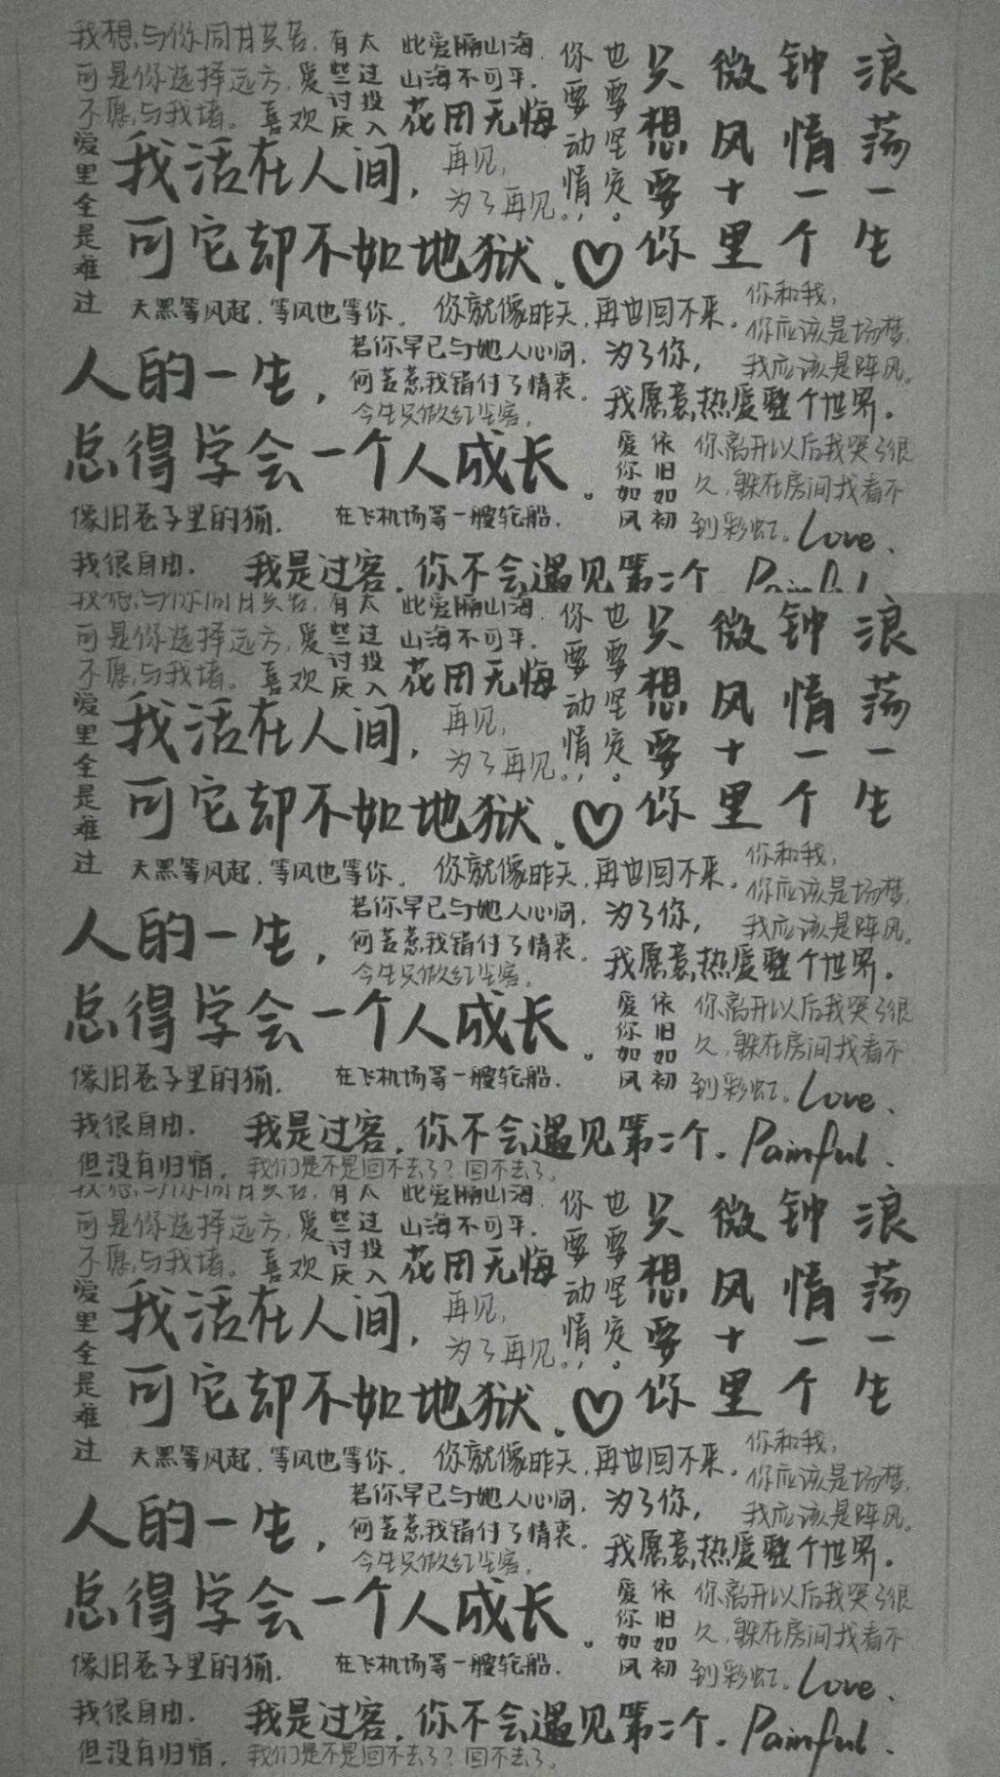 我想与你同甘共苦,
可是你选择远方,
不愿与我堵。
爱喜欢
有些讨厌
太过投入
此爱隔山海,
山海不可平.
花田无悔
你要动情,
也要坚定。
只想要你
微风十里
钟情一个
浪荡一生
爱里全是难过
我活在人间,
可它却不如地狱.♡
再见,
为了再见。
天黑等风起.等风也等你.
你就像昨天,再也回不来.
你和我,
你应该是场梦,
我应该是阵风。
人的一生,
总得学会一个人成长.
若你早已与她人心同,
何苦惹我错付了情衷.
今生只做红尘客.
为了你,
我愿意热爱整个世界.
爱你如风
依旧如初
你离开以后我哭了很
久,躲在房间找看不
到彩虹。Love.
像旧巷子里的猫.
在飞机场等一艘轮船.
我很自由.
我是过客.你不会遇见第二个. Painful
我想与你同甘共苦,
可是你选择远方,
不愿与我堵。
爱喜欢
有些讨厌
太过投入
此爱隔山海,
山海不可平.
花田无悔
你要动情,
也要坚定。
只想要你
微风十里
钟情一个
浪荡一生
爱里全是难过
我活在人间,
可它却不如地狱.♡
再见,
为了再见。
天黑等风起.等风也等你.
你就像昨天,再也回不来.
你和我,
你应该是场梦,
我应该是阵风。
人的一生,
总得学会一个人成长.
若你早已与她人心同,
何苦惹我错付了情衷.
今生只做红尘客.
为了你,
我愿意热爱整个世界.
爱你如风
依旧如初
你离开以后我哭了很
久,躲在房间找看不
到彩虹。Love.
像旧巷子里的猫.
在飞机场等一艘轮船.
我很自由.
但没有归宿.
我是过客.你不会遇见第二个. Painful.
我们是不是回不去了?回不去了.
我想与你同甘共苦,
可是你选择远方,
不愿与我堵。
爱喜欢
有些讨厌
太过投入
此爱隔山海,
山海不可平.
花田无悔
你要动情,
也要坚定。
只想要你
微风十里
钟情一个
浪荡一生
爱里全是难过
我活在人间,
可它却不如地狱.♡
再见,
为了再见。
天黑等风起.等风也等你.
你就像昨天,再也回不来.
你和我,
你应该是场梦,
我应该是阵风。
人的一生,
总得学会一个人成长.
若你早已与她人心同,
何苦惹我错付了情衷.
今生只做红尘客.
为了你,
我愿意热爱整个世界.
爱你如风
依旧如初
你离开以后我哭了很
久,躲在房间找看不
到彩虹。Love.
像旧巷子里的猫.
在飞机场等一艘轮船.
我很自由.
但没有归宿.
我是过客.你不会遇见第二个. Painful.
我们是不是回不去了?回不去了.